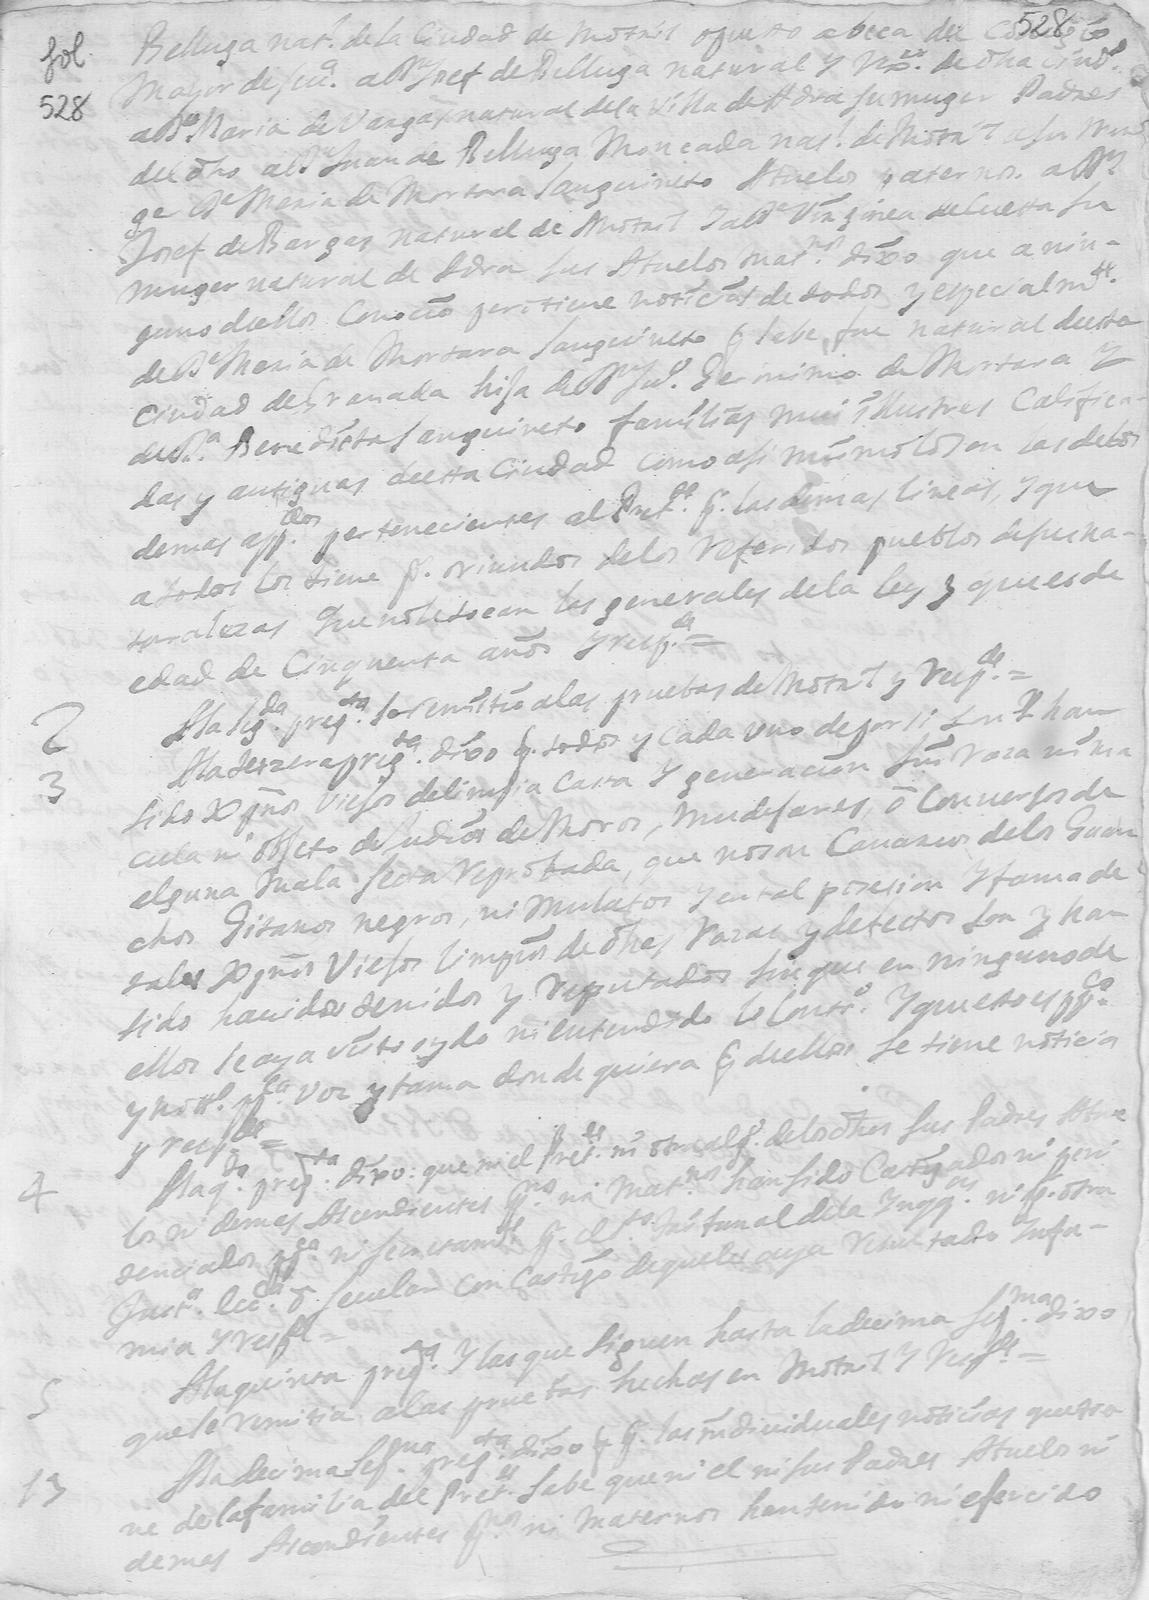 528
fol.
528
Belluga nat. de la Ciudad de Motril opuesto a beca del Colegio
Mayor de a Dn Josef de Belluga natural y Vºº. de dha Ciud.
a Dª Maria de Vargas natural de la Villa de Adra su muger Padres
del dho a Dn Juan de Belluga Moncada nat. de Motril a su mu
ger Dª Maria de Mortara Sanguineto Abuelos paternos. a Dn
Josef de Bargas natural de Motril y a Dª Virginea de Cuesta su
muger natural de Adra sus Abuelos Mat.nos dixo que a nin-
guno de ellos Conocio pero tiene noticias de todos y especialmte.
de Dª Maria de Mortara Sanguineto q sabe fue natural de esta
Ciudad de Granada hija de Dn Juº. Geronimo de Mortara y
de Dª. Benedicta Sanguineto familias mui illustres Califica-
das y antiguas de esta Ciudad como asi mismo lo son las de los
demas app.dos pertenecientes al Pret.te p. las demas lineas, y que
a todos los tiene p. oriundos de los referidos pueblos de sus na-
turalezas que no le tocan las generales de la ley y que es de
edad de Cinquenta años y resp.de =
2 A la seg.da preg.ta se remitio a las pruebas de Motril y resp.de =
3 A la terzera preg.ta dixo q. todos y cada uno de por si son y han
sido Xpnos Viejos de limpia Casta y generacion sin raza ni ma
cula ni objeto de Judios de Moros, Mudejares, ô Conversos de
alguna mala secta reprobada, que no son Canarios de los Guan
chos Gitanos negros, ni Mulatos y en tal posesion y fama de
tales Xpnos Viejos limpios de dhas razas y defectos son y han
sido havidos tenidos y reputados sin que en ninguno de
ellos se aya visto oydo ni entendido lo Contrº. y que esto es ppcº.
y nott. ppca. voz y fama donde quiera q de ellos se tiene noticia
y resp.de =
4 A la q.ta preg.ta dixo: que ni el Pret.te ni otro alg. de los dhos sus Padres Abue
los ni demas Ascendientes p.nos ni Mat.nos han sido Castigados ni peni
tenciados ppca. ni secretamte p. el Sto. Tribunal de la Inqq.on ni p. otra
Justª. Eccª. ô Secular con Castigo de que les aya resultado Infa-
mia y resp.de =
5 A la quinta preg.ta y las que siguen hasta la decima sep.ma dixo
que se remitia a las pruebas hechas en Motril y resp.de =
13 A la decima Sep.ma preg.ta dixo q p. las individuales noticias que tie
ne de la familia del Pret.te sabe que ni el ni sus Padres Abuelos ni
demas Ascendientes p.nos ni maternos han tenido ni ejercido